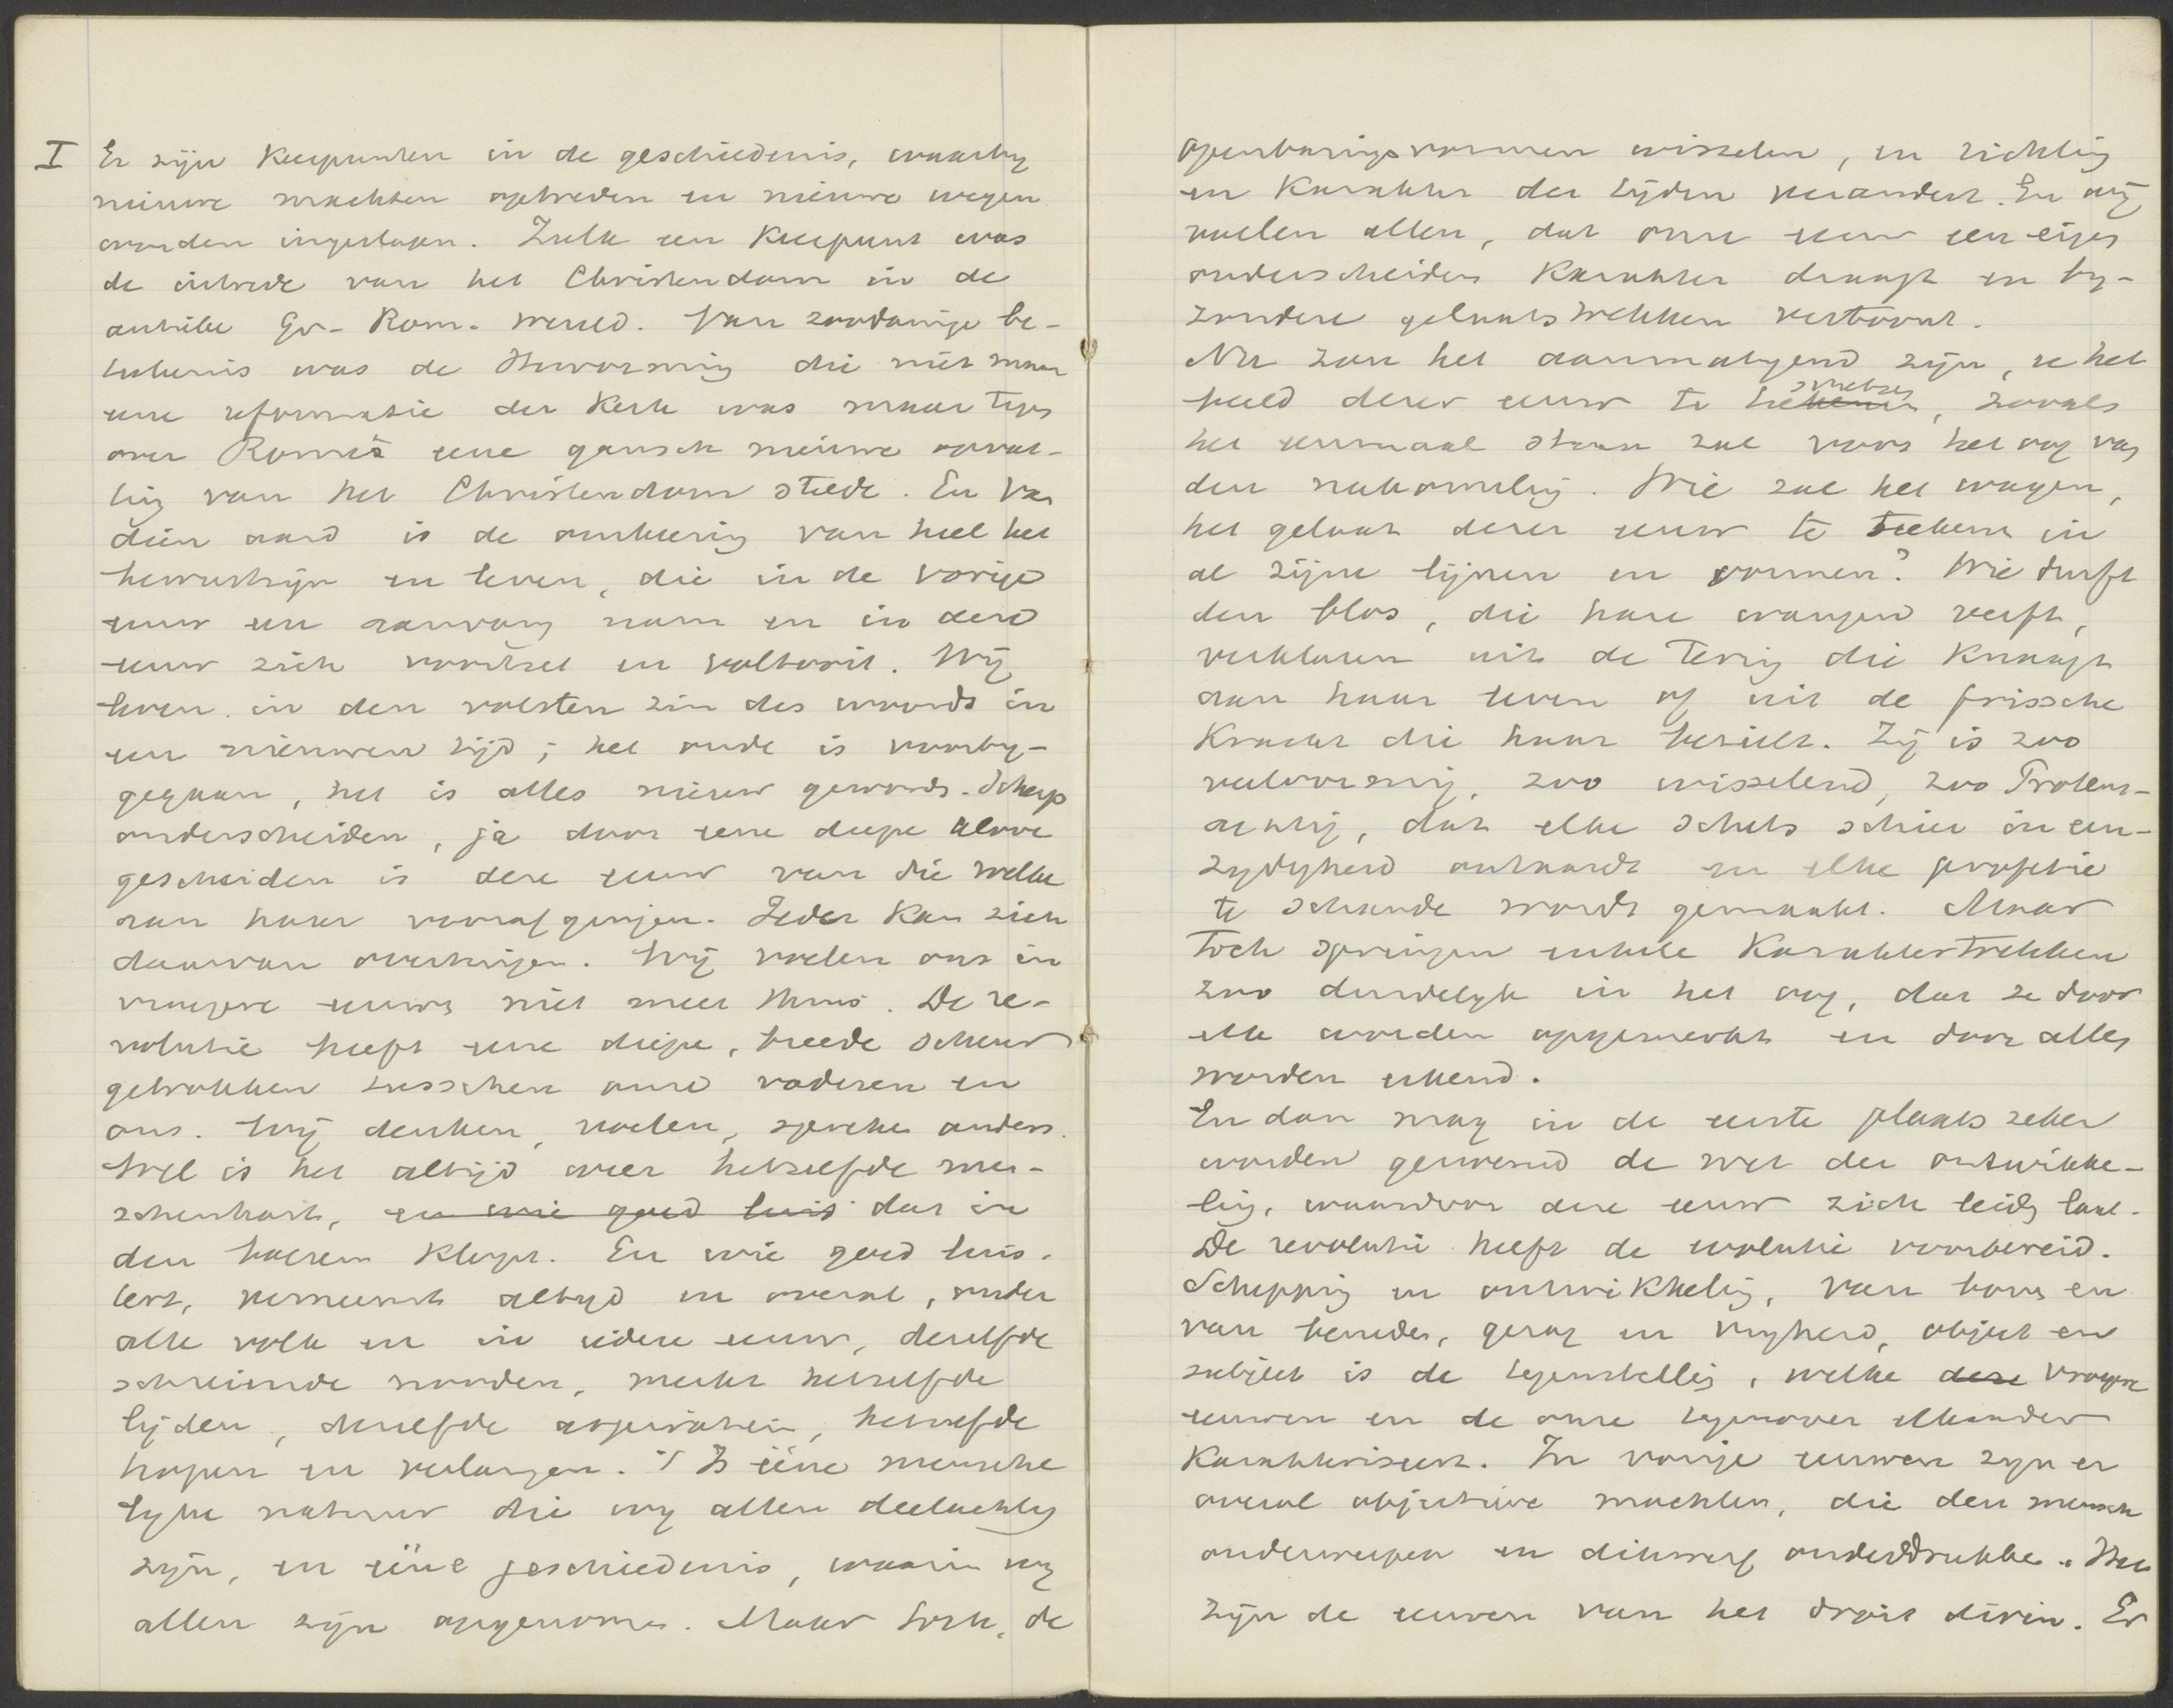 I Er zijn Keerpunten in de geschiedenis, waarby
nieuwe machten optreden en nieuwe wegen
worden ingeslagen. Zulk een Keerpunt was
de intrede van het Christendom in de
antieke Gr.-Rom. wereld. Van zoodanige be-
teekenis was de Hervorming die niet maar
eene reformatie der Kerk was maar tegen
over Rome's eene gansch nieuwe opvat-
ting van het Christendom stelde. En van
dien aard is de omkeering van heel het
bewustzijn en leven, die in de vorige
eeuw een aanvang nam en in deze
eeuw zich voortzet en voltooit. Wij
leven in den volsten zin des woords in
een nieuwen tijd; het oude is voorby-
gegaan, het is alles nieuw geworden. Scherp
onderscheiden, ja door eene diepe kloove
gescheiden is deze eeuw van die welke
aan haar voorafgingen. Ieder kan zich
daarvan overtuigen. Wij voelen ons in
vroegere eeuwen niet meer thuis. De re-
volutie heeft eene diepe, breede scheur
getrokken tusschen onze vaderen en
ons. Wij denken, voelen, spreken anders.
Wel is het altijd weer hetzelfde men-
schenhart, en wie goed luis dat in
den boezem Klopt. En wie goed luis-
tert, verneemt altyd en overal, onder
alle volk en in iedere eeuw, dezelfde
schreiende nooden, merkt hetzelfde
lijden, dezelfde aspiratien, hetzelfde
hopen en verlangen. 't Is ééne mensche
lyke natuur die wy allen deelachtig
zijn, en ééne geschiedenis, waarin wy
allen zijn opgenomen. Maar toch, de
openbaringsvormen wisselen, en richting
en Karakter der tijden verandert. En wij
voelen allen, dat onze eeuw een eigen
onderscheiden Karakter draagt en by-
zondere gelaatstrekken vertoont.
Nu zou het aanmatigend zijn, u het
beeld dezer eeuw te teekenen schetsen, zooals
het eenmaal staan zal voor het oog van
den nakomeling. Wie zal het wagen,
het gelaat dezer eeuw te teekenen in
al zijne lijnen en vormen? Wie durft
den blos, die hare wangen verft,
verklaren uit de tering die Knaagt
aan haar leven of uit de frissche
Kracht die haar bezielt. Zij is zoo
veelvormig, zoo wisselend, zoo Proteus-
achtig, dat elke schets schier in een-
zydigheid ontaardt en elke profetie
te schande wordt gemaakt. Maar
toch springen enkele Karaktertrekken
zoo duidelyk in het oog, dat ze door
elk worden opgemerkt en door allen
worden erkend.
En dan mag in de eerste plaats zeker
worden genoemd de wet der ontwikke-
ling, waardoor deze eeuw zich leiden laat.
De revolutie heeft de evolutie voorbereid.
Schepping en ontwikkeling, van boven en
van beneden, gezag en vryheid, object en
subject is de tegenstelling, welke deze vroegere
eeuwen en de onze tegenover elkander
Karakteriseert. In vorige eeuwen zyn er
overal objectieve machten, die den mensch
onderwerpen en dikwerf onderdrukken. Het
zijn de eeuwen van het droit divin. Er